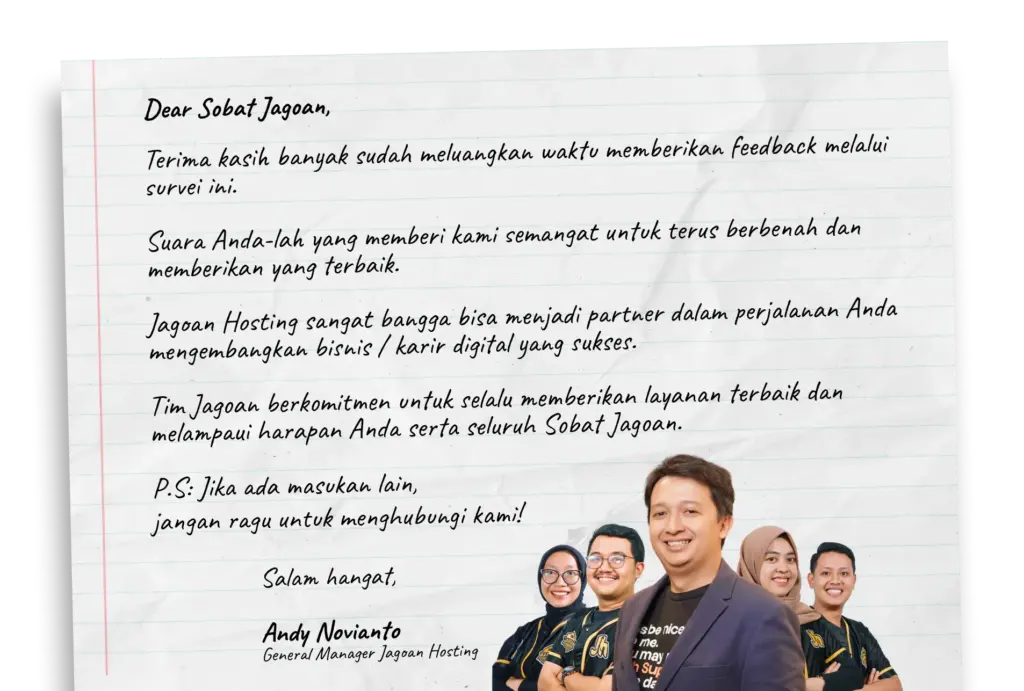 Dear Sobat Jagoan,
Terima kasih banyak sudah meluangkan waktu memberikan feedback melalui
survei ini.
Suara Anda-lah yang memberi kami semangat untuk terus berbenah dan
memberikan yang terbaik.
Jagoan Hosting sangat bangga bisa menjadi partner dalam perjalanan Anda
mengembangkan bisnis / karir digital yang sukses.
Tim Jagoan berkomitmen untuk selalu memberikan layanan terbaik dan
melampaui harapan Anda serta seluruh Sobat Jagoan.
P.S: Jika ada masukan lain,
jangan ragu untuk menghubungi kami!
Salam hangat,
Andy Novianto
General Manager Jagoan Hosting
be nice
me.
may
Jh